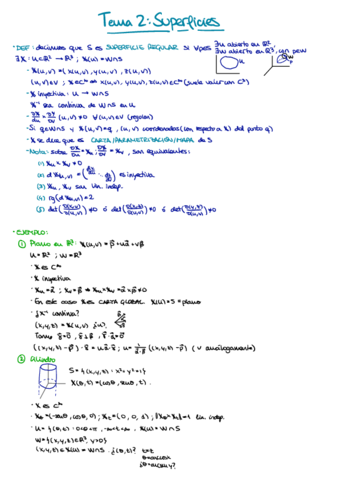 Tema 2: Superficies
• DEF: decimos que S es SUPERFICIE REGULAR si ∀p∈S ∃W abierto en ℝ³, U abierto en ℝ², con p∈W
∃ X: U⊂ℝ² → ℝ³; X(U) = W∩S
- X(u,v) = (x(u,v), y(u,v), z(u,v))
(u,v)∈U; X∈C^∞ ⇔ x(u,v), y(u,v), z(u,v)∈C^∞ (suele valer con C³)
- X inyectiva: U → W∩S
- X⁻¹ sea continua de W∩S en U
- ∂X/∂u × ∂X/∂v (u,v) ≠ 0 ∀(u,v)∈U (regular)
- Si q∈W∩S y X(u,v)=q, (u,v) coordenadas (con respecto a X) del punto q
- X se dice que es CARTA/PARAMETRIZACIÓN/MAPA de S
- Nota: sobre ∂X/∂u = Xu, ∂X/∂v = Xv, son equivalentes:
(1) Xu × Xv ≠ 0
(2) dX(u,v) = es inyectiva
(3) Xu, Xv son lin. indep.
(4) rg(dX(u,v)) = 2
(5) det ≠ 0 ó det ≠ 0 ó det ≠ 0
• EJEMPLO:
① Plano en ℝ³: X(u,v) = p + ua + vb
U = ℝ²; W = ℝ³
- X es C^∞
- X inyectiva
- Xu = a; Xv = b ⇒ Xu × Xv = a × b ≠ 0
- En este caso X es CARTA GLOBAL. X(U) = S = plano
- ¿X⁻¹ continua?
(x,y,z) = X(u,v) ¿u?
Tomo
(v análogamente)
② Cilindro
S = {(x,y,z) : x²+y²=1}
X(θ,t) = (cosθ, senθ, t)
- X es C^∞
- Xθ = (-senθ, cosθ, 0); Xt = (0, 0, 1); lin. indep.
- U = {(θ,t) : 0<θ<π, -∞<t<∞}. X(U) = W∩S
W = {(x,y,z)∈ℝ³, y>0}
(x,y,z)∈X(U) = W∩S. ¿(θ,t)? t=z
θ=arccosx